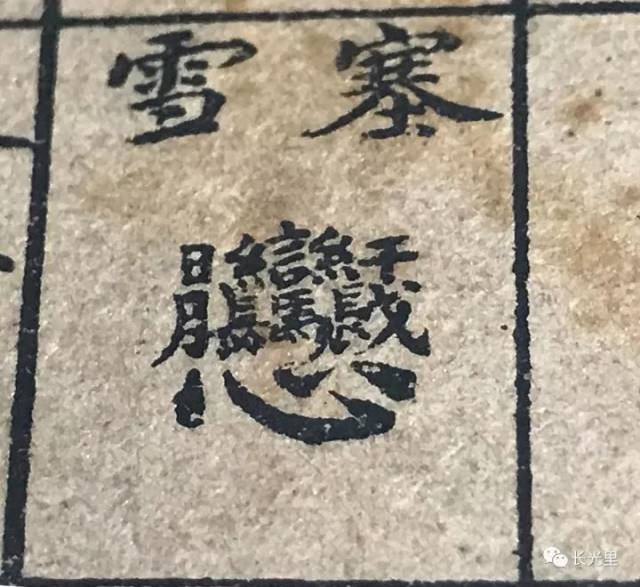 塞雪
长光里